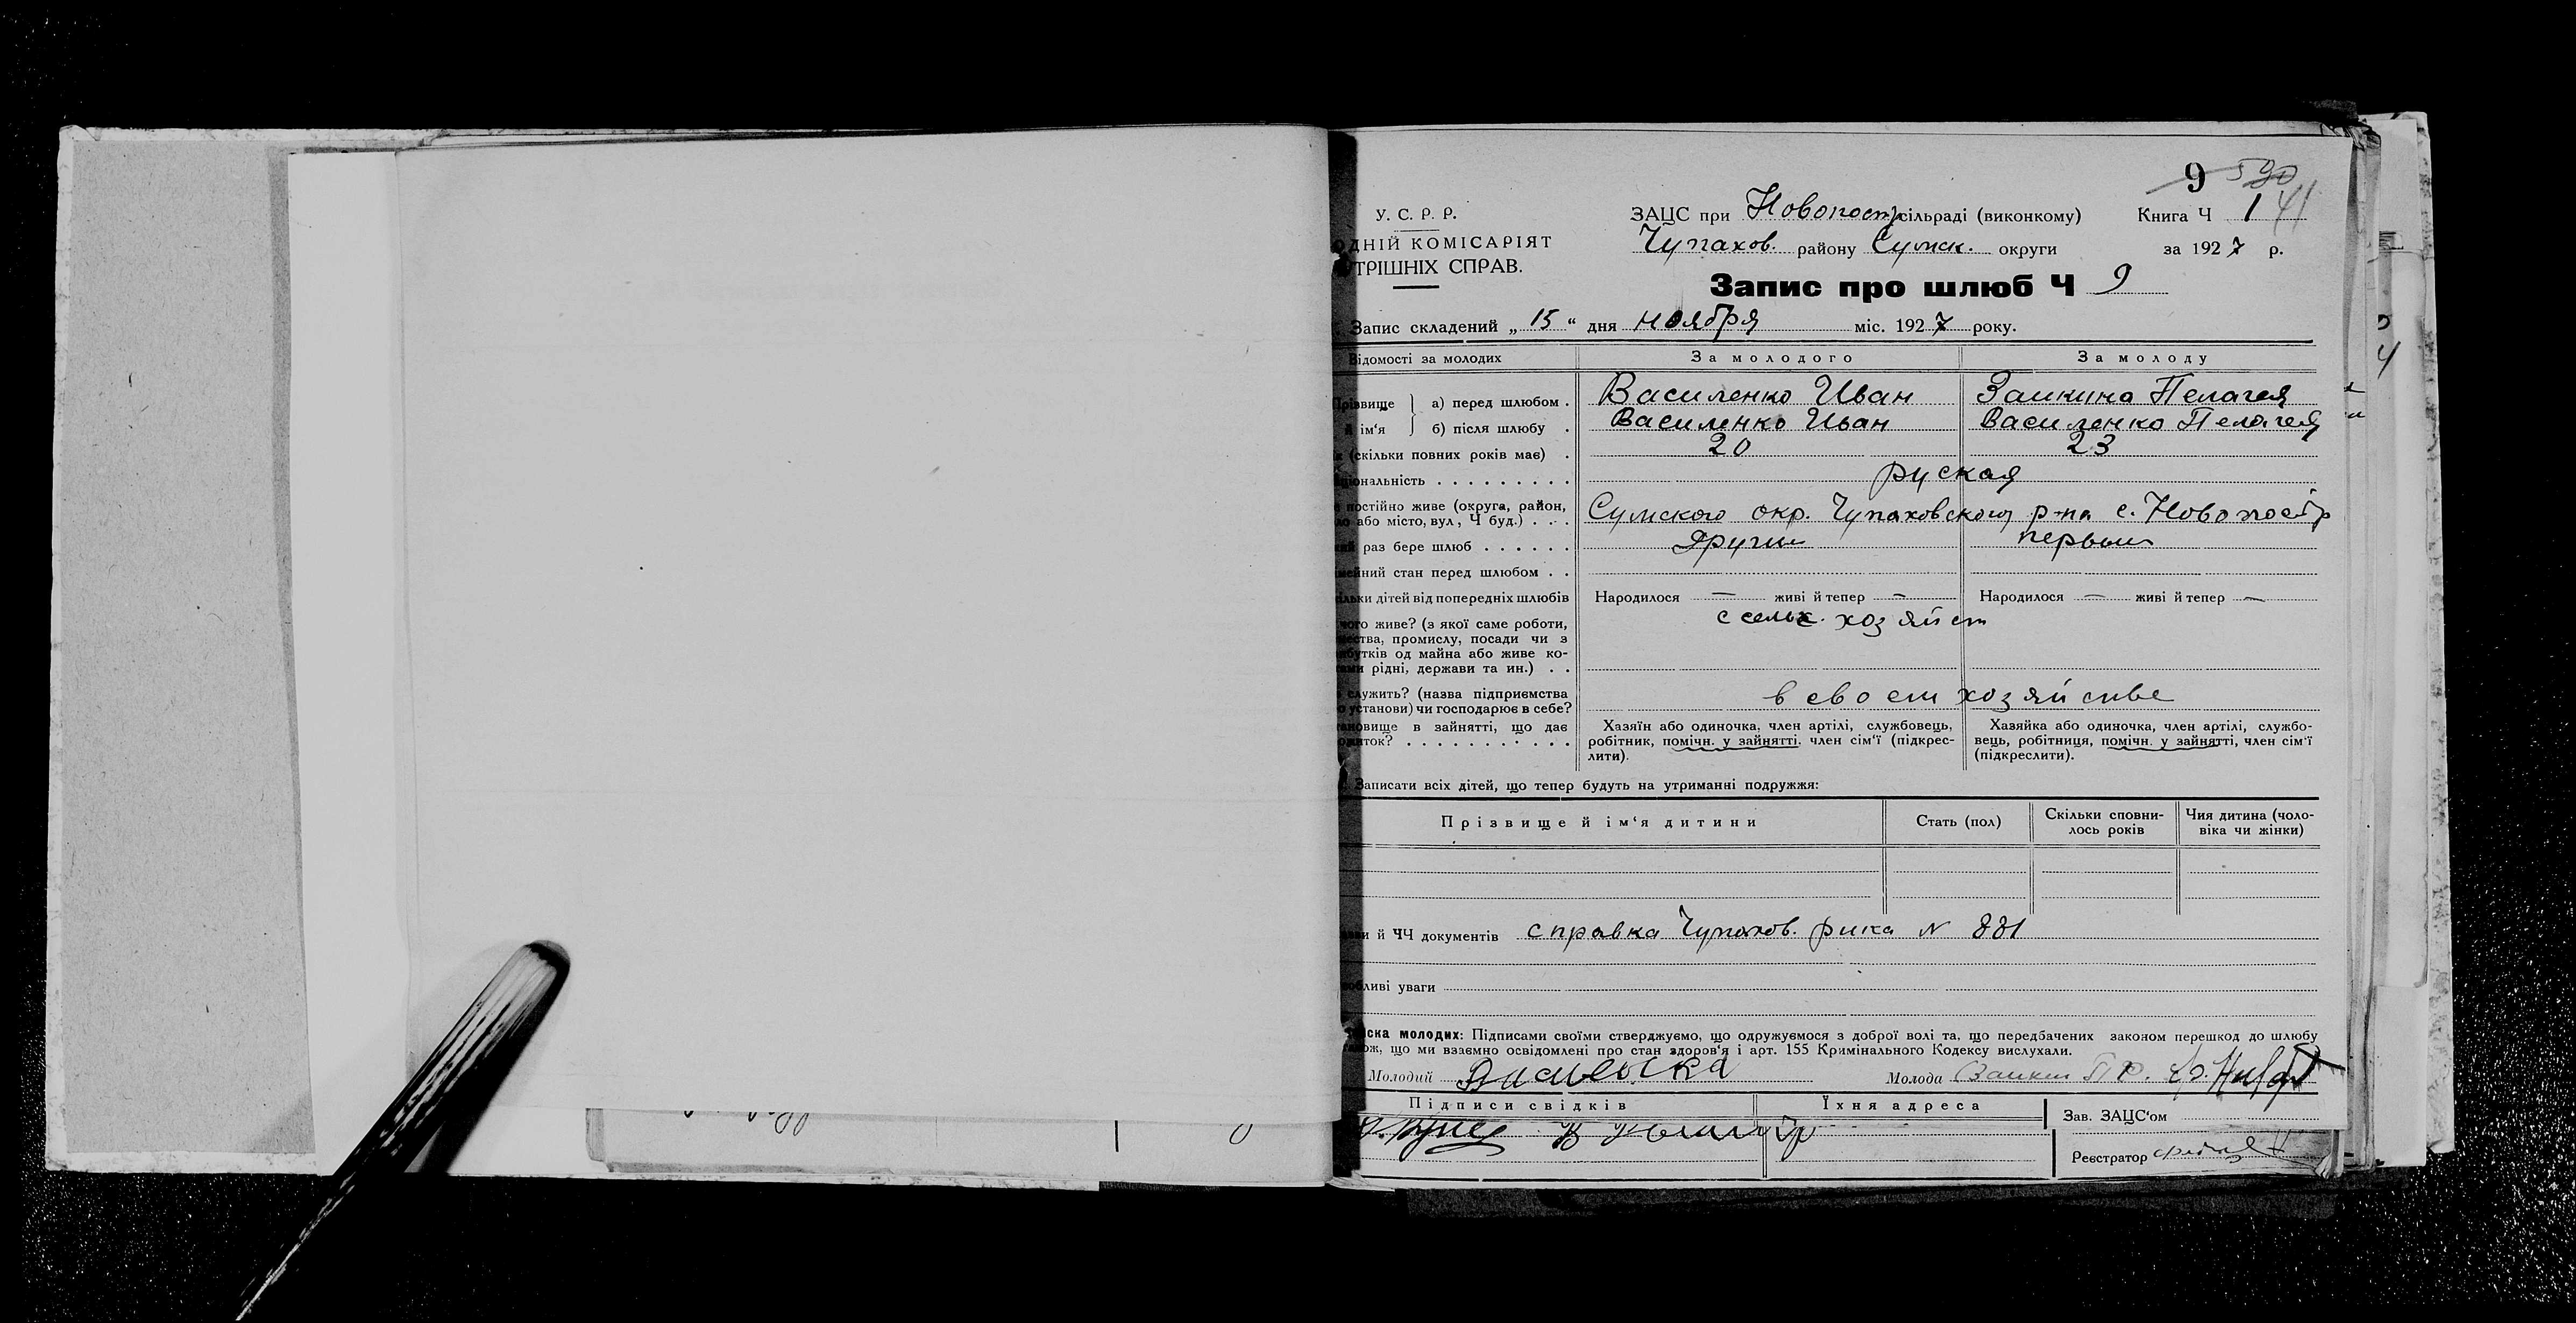 9 590
41
У. С. Р. Р.
ОДНІЙ КОМІСАРІЯТ
ТРІШНІХ СПРАВ.
ЗАЦС при Новопостр сільраді (виконкому) Книга Ч 1
Чупахов. району Сумск. округи за 1927 р.
Запис про шлюб Ч 9
Запис складений „ 15 “ дня ноября міс. 1927 року.
Відомості за молодих За молодого За молоду
Прізвище а) перед шлюбом . Василенко Иван Заикина Пелагея
й ім‘я б) після шлюбу . Василенко Иван Василенко Пелагея
(скільки повних років має) . 20 23
ціональність . . . . . . . . . руская
постійно живе (округа, район,
або місто, вул, Ч буд.) . . . Сумского окр. Чупаховского р-на с. Новопостр
раз бере шлюб . . . . . . Други первы
мейний стан перед шлюбом . .
ільки дітей від попередніх шлюбів Народилося — живі й тепер — Народилося — живі й тепер —
чого живе? (з якої саме роботи, с сельх. хозяйст
ества, промислу, посади чи з
бутків од майна або живе ко-
рідні, держави та ин.) . .
служить? (назва підприємства
установи) чи господарює в себе? в своем хозяйстве
ановище в зайнятті, що дає Хазяїн або одиночка, член артілі, службовець, Хазяйка або одиночка, член артілі, службо-
иток? . . . . . . . . . . . робітник, помічн. у зайнятті. член сім‘ї (підкрес- вець, робітниця, помічн. у зайнятті, член сім‘ї
лити). (підкреслити).
Записати всіх дітей, що тепер будуть на утриманні подружжя:
Прізвище й ім‘я дитини Стать (пол) Скільки сповни- Чия дитина (чоло-
лось років віка чи жінки)
й ЧЧ документів справка Чупахов. рика N 881
ливі уваги
ска молодих: Підписами своїми стверджуємо, що одружуємося з доброї волі та, що передбачених законом перешкод до шлюбу
ож, що ми взаємно освідомлені про стан здоров‘я і арт. 155 Кримінального Кодексу вислухали.
Молодий Молода
Підписи свідків Їхня адреса Зав. ЗАЦС‘ом
Реєстратор